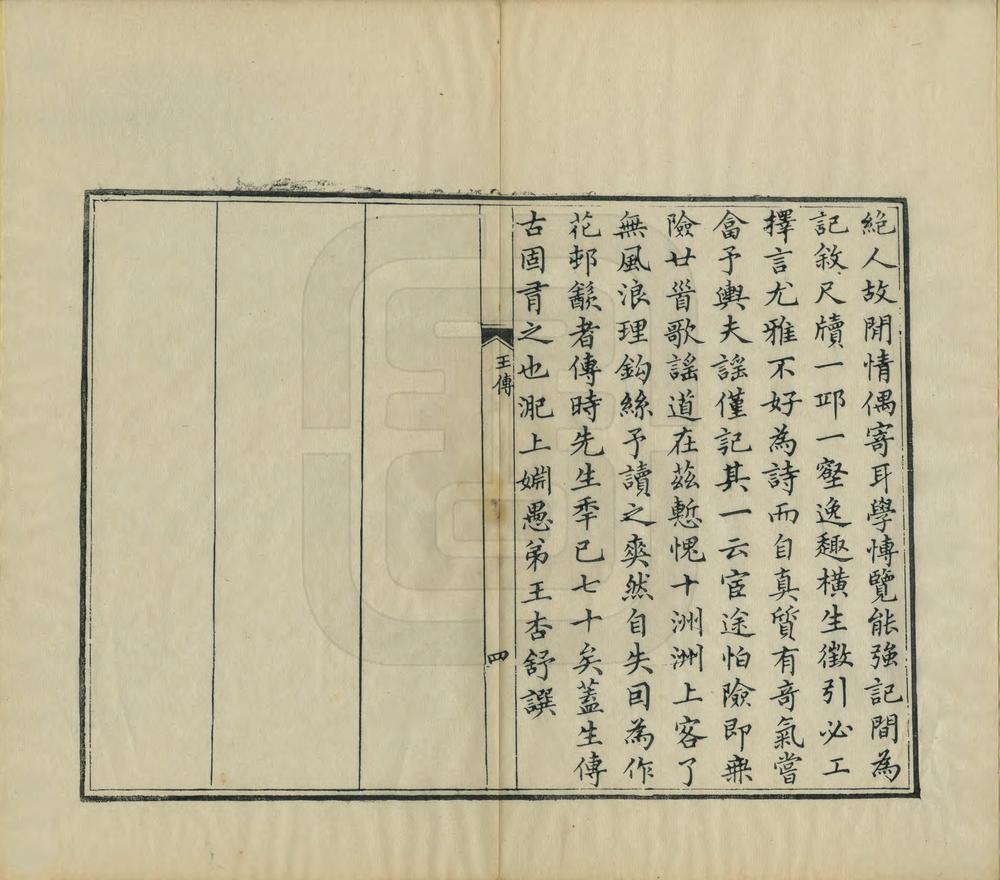 絕人故閒情偶寄耳學博覽能強記間為
記敘尺牘一邱一壑逸趣橫生徵引必工
擇言尤雅不好為詩而自真質有奇氣嘗
畣予輿夫謠僅記其一云宦途怕險即無
險廿首歌謠道在茲慙愧十洲洲上客了
無風浪理鈎絲予讀之爽然自失回為作
花邨者傳時先生秊已七十矣蓋生傳
古固有之也淝上嫻愚弟王杏舒譔
王傳
四